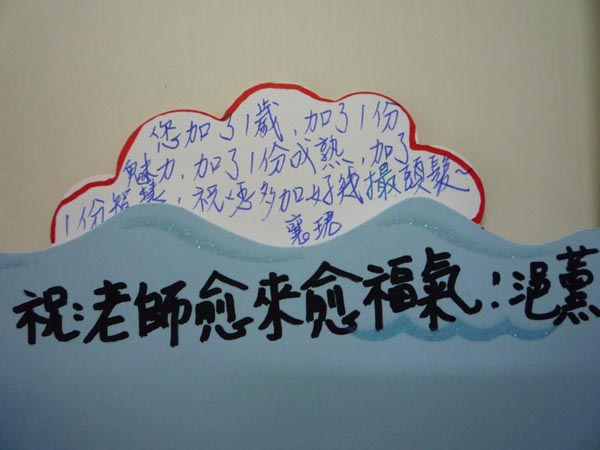 您加了1歲,加了1份
魅力,加了1份成熟,加了
1份智慧,祝您多加好幾撮頭髮~
襄珺
祝:老師愈來愈福氣!浥薰